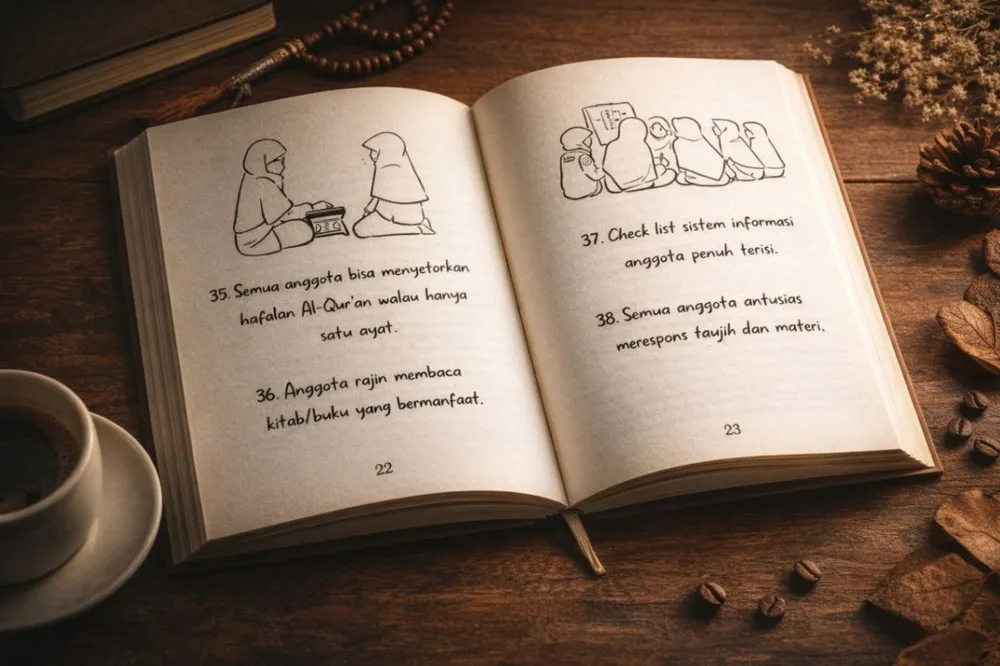 35. Semua anggota bisa menyetorkan
hafalan Al-Qur'an walau hanya
satu ayat.
36. Anggota rajin membaca
kitab/buku yang bermanfaat.
22
37. Check list sistem informasi
anggota penuh terisi.
38. Semua anggota antusias
merespons taujih dan materi.
23